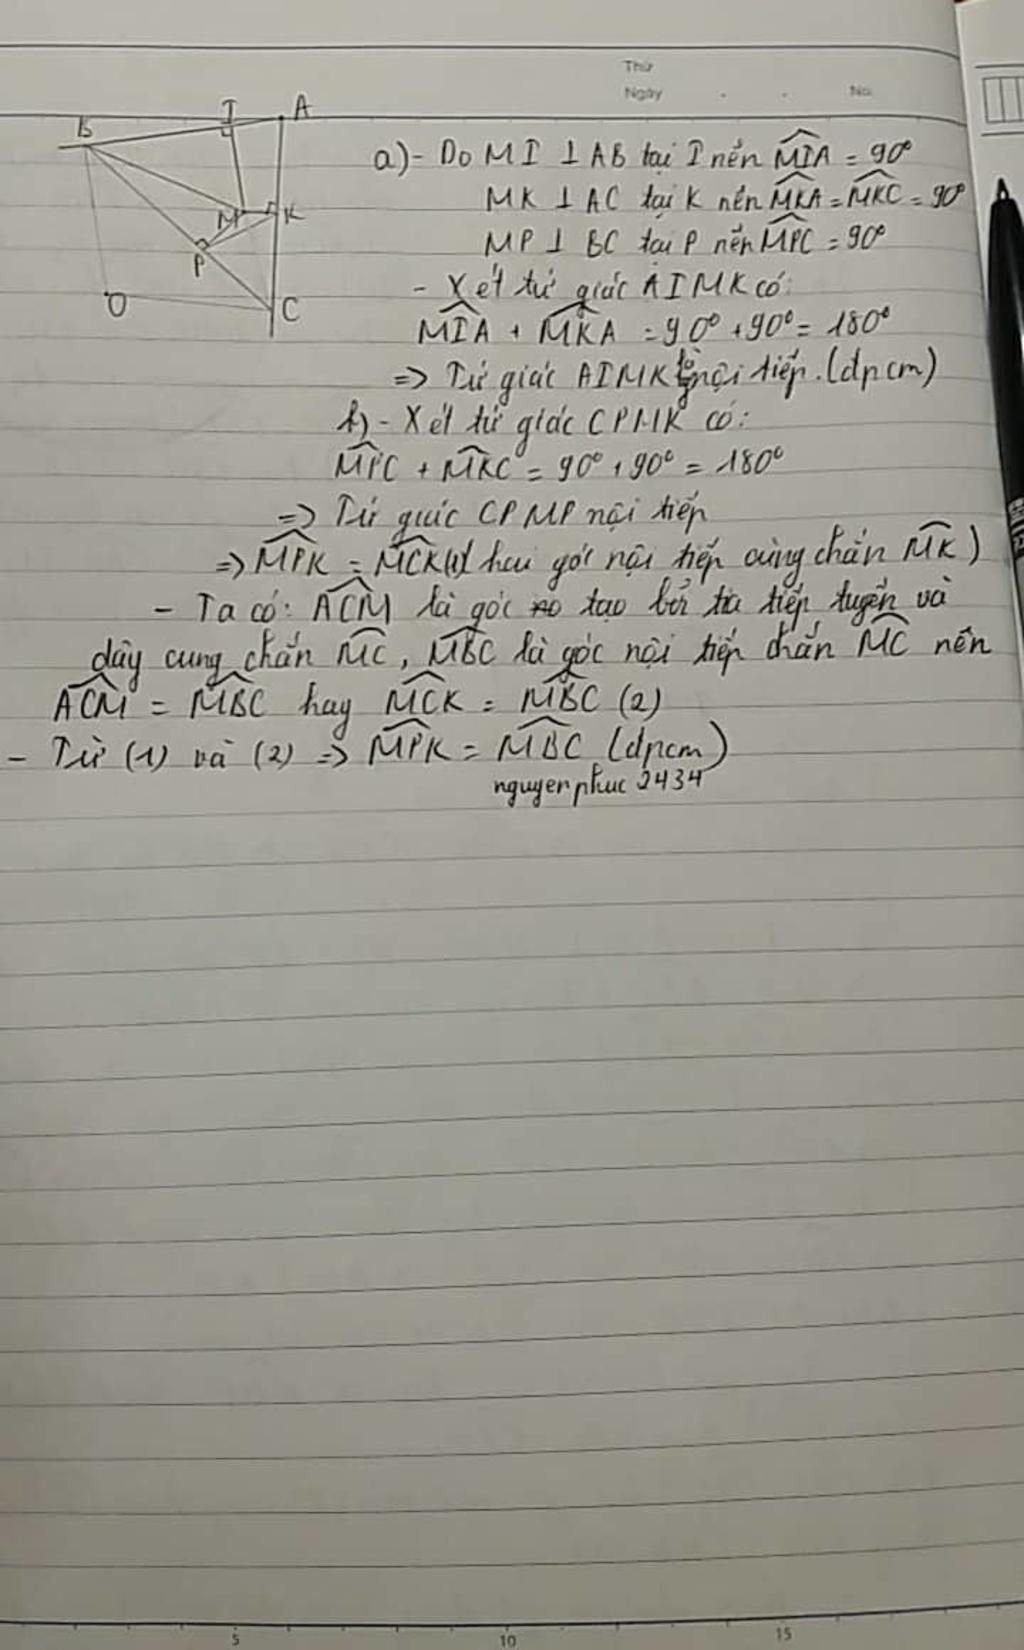 Thứ
Ngày . . No.
B I A
M K
P
O C
a) - Do MI ⊥ AB tại I nên MIA = 90°
MK ⊥ AC tại K nên MKA = MKC = 90°
MP ⊥ BC tại P nên MPC = 90°
- Xét tứ giác AIMK có:
MIA + MKA = 90° + 90° = 180°
=> Tứ giác AIMK là nội tiếp. (đpcm)
b) - Xét tứ giác CPMK có:
MPC + MKC = 90° + 90° = 180°
=> Tứ giác CPMP nội tiếp
=> MPK = MCK (1) (hai góc nội tiếp cùng chắn MK)
- Ta có: ACM là góc tạo bởi tia tiếp tuyến và
dây cung chắn MC, MBC là góc nội tiếp chắn MC nên
ACM = MBC hay MCK = MBC (2)
- Từ (1) và (2) => MPK = MBC (đpcm)
nguyenphuc2434
5 10 15